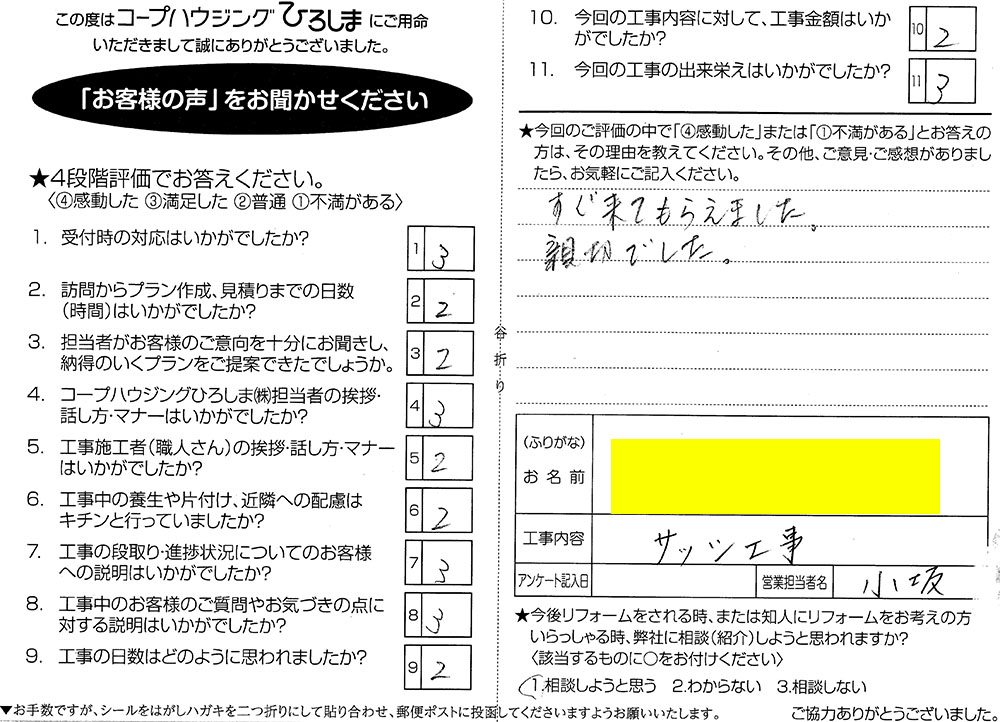 この度はコープハウジングひろしまにご用命
いただきまして誠にありがとうございました。
「お客様の声」をお聞かせください
★4段階評価でお答えください。
〈④感動した ③満足した ②普通 ①不満がある〉
1. 受付時の対応はいかがでしたか?
1 3
2. 訪問からプラン作成、見積りまでの日数
（時間）はいかがでしたか?
2 2
3. 担当者がお客様のご意向を十分にお聞きし、
納得のいくプランをご提案できたでしょうか。
3 2
4. コープハウジングひろしま㈱担当者の挨拶・
話し方・マナーはいかがでしたか?
4 3
5. 工事施工者（職人さん）の挨拶・話し方・マナー
はいかがでしたか?
5 2
6. 工事中の養生や片付け、近隣への配慮は
キチンと行っていましたか?
6 2
7. 工事の段取り・進捗状況についてのお客様
への説明はいかがでしたか?
7 3
8. 工事中のお客様のご質問やお気づきの点に
対する説明はいかがでしたか?
8 3
9. 工事の日数はどのように思われましたか?
9 2
▼お手数ですが、シールをはがしハガキを二つ折りにして貼り合わせ、郵便ポストに投函してくださいますようお願いいたします。
谷折り
10. 今回の工事内容に対して、工事金額はいか
がでしたか?
10 2
11. 今回の工事の出来栄えはいかがでしたか?
11 3
★今回のご評価の中で「④感動した」または「①不満がある」とお答えの
方は、その理由を教えてください。その他、ご意見・ご感想がありまし
たら、お気軽にご記入ください。
すぐ来てもらえました。
親切でした。
（ふりがな）
お名前
工事内容 サッシ工事
アンケート記入日 営業担当者名 小坂
★今後リフォームをされる時、または知人にリフォームをお考えの方
いらっしゃる時、弊社に相談（紹介）しようと思われますか?
〈該当するものに○をお付けください〉
1.相談しようと思う 2.わからない 3.相談しない
ご協力ありがとうございました。